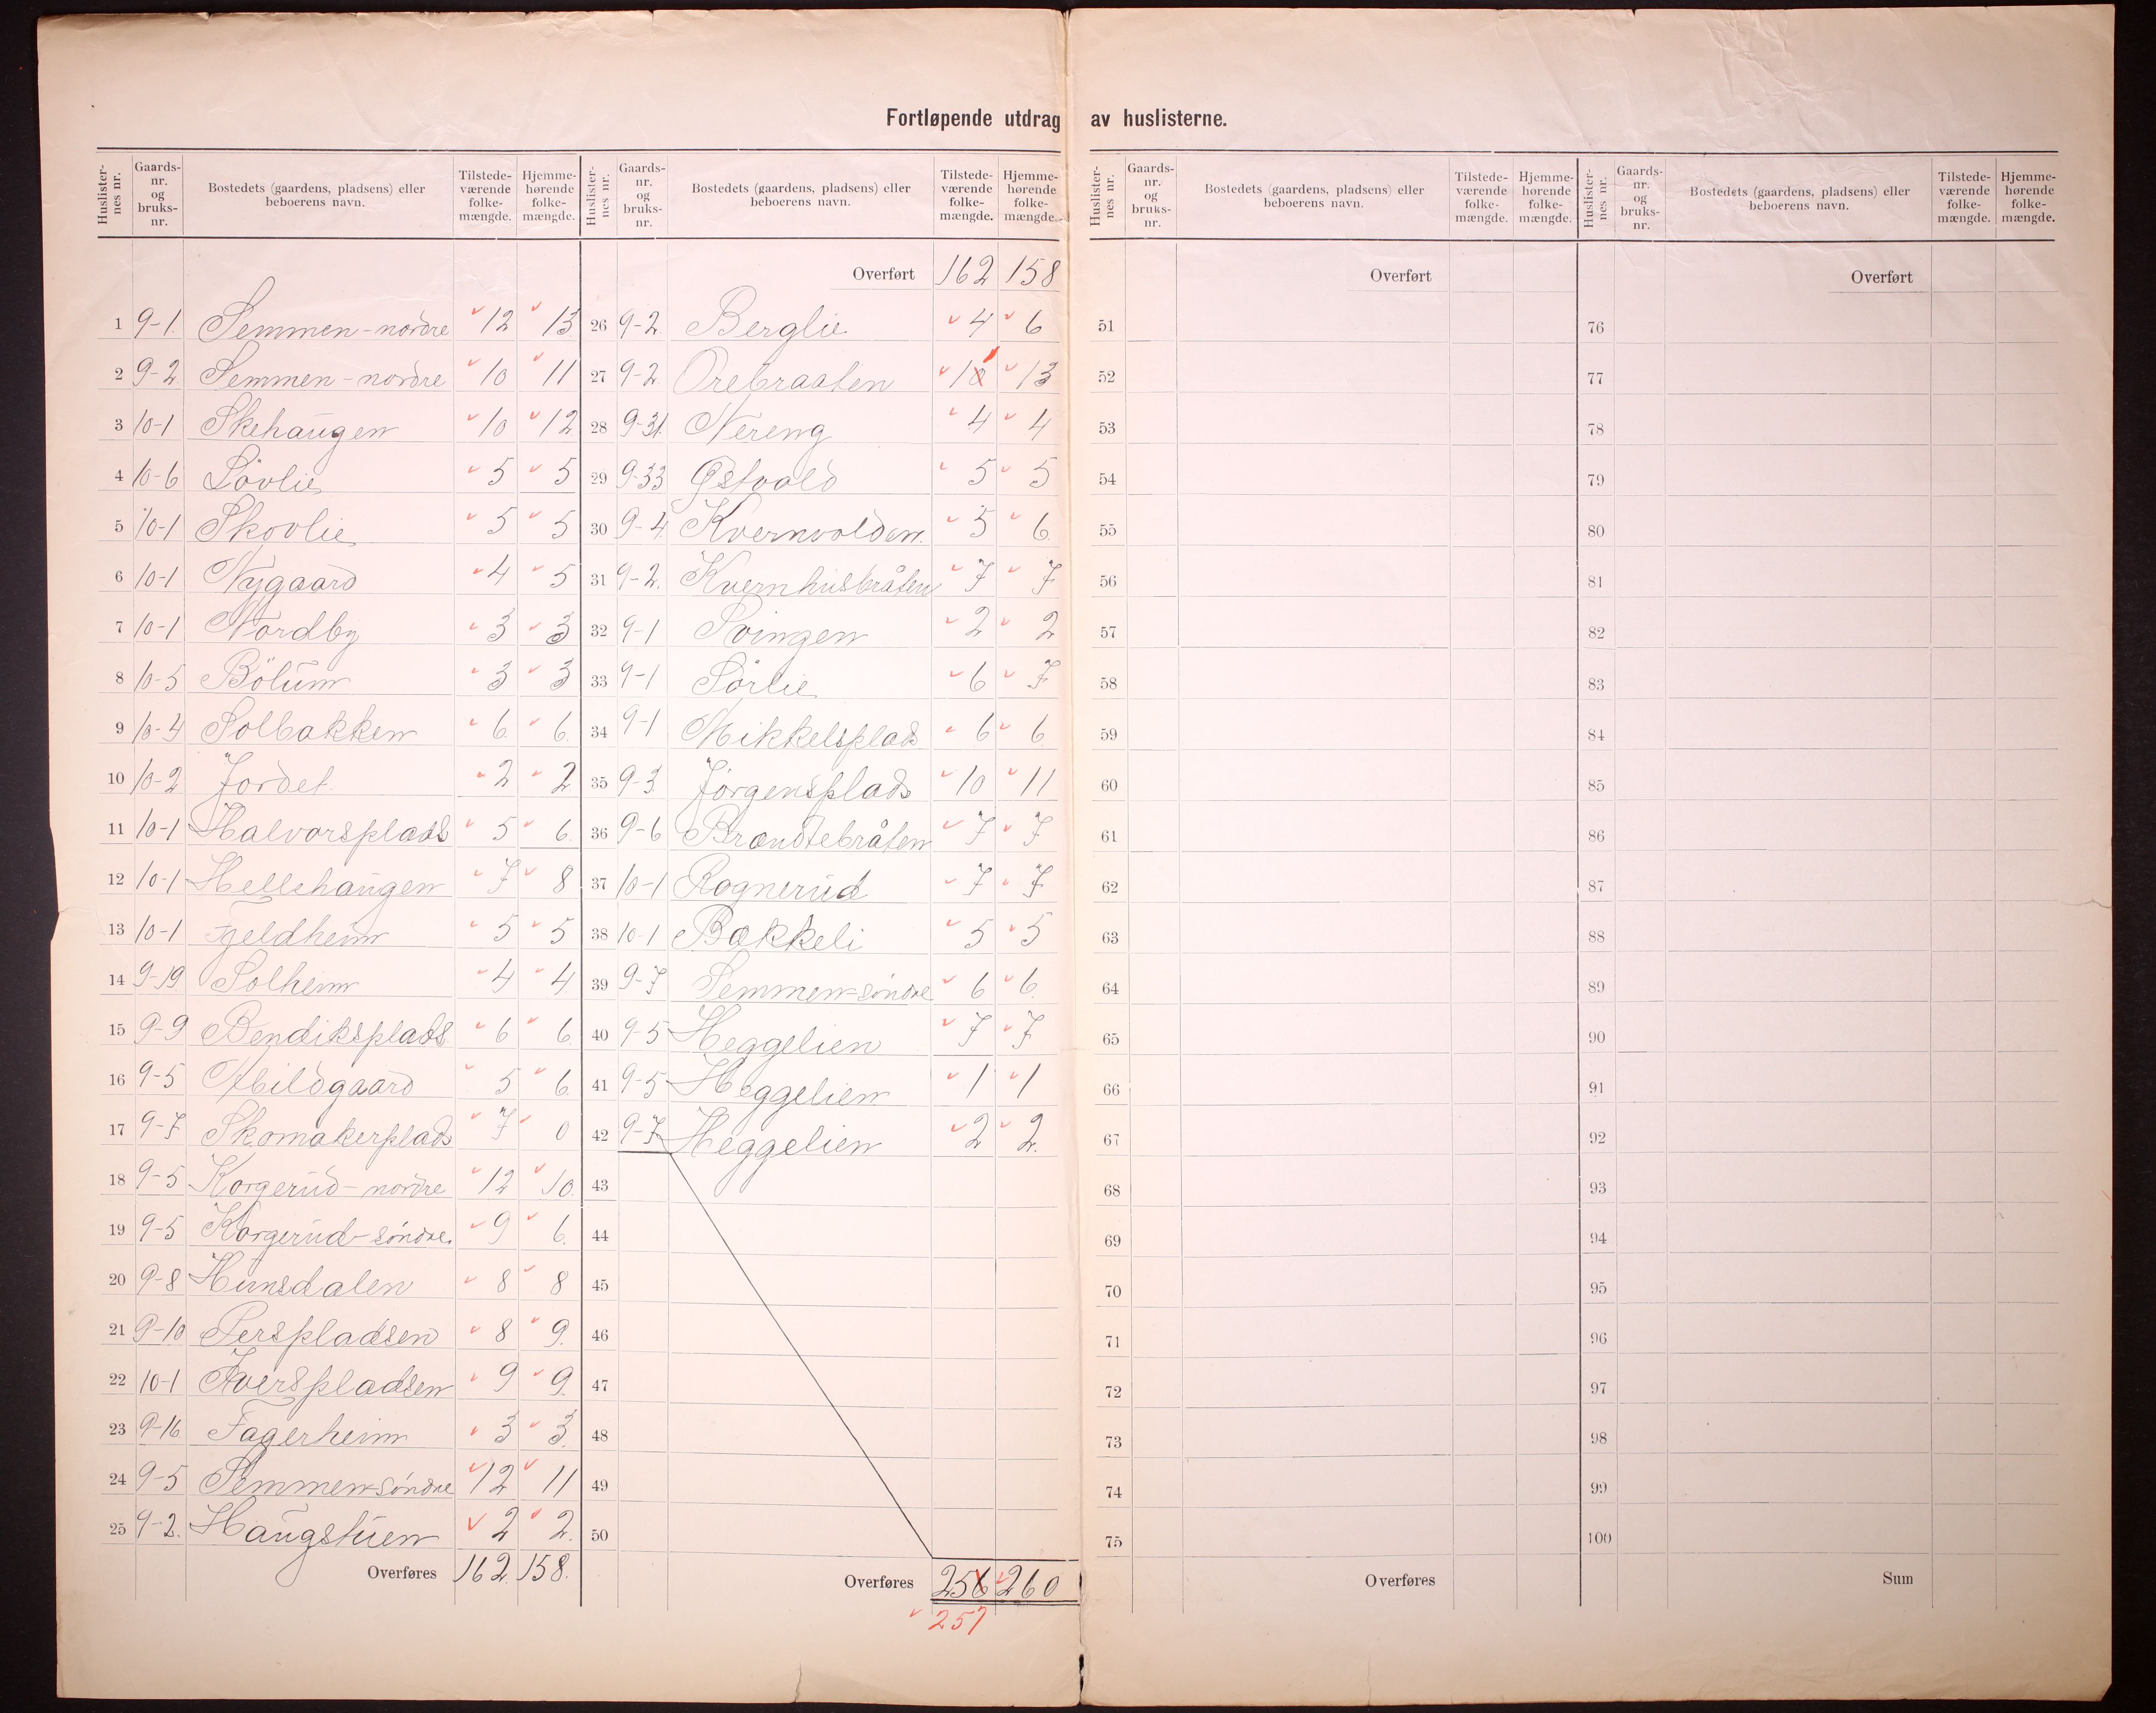 Fortløpende utdrag av huslisterne.
Huslisternes nr. Gaardsnr. og bruksnr. Bostedets (gaardens, pladsens) eller beboerens navn. Tilstedeværende folkemængde. Hjemmehørende folkemængde.
1 9-1. Semmen-nordre 12 13
2 9-2 Semmen-nordre 10 11
3 10-1 Skehaugen 10 12
4 10-6 Lövlie 5 5
5 10-1 Skovlie 5 5
6 10-1 Nygaard 4 5
7 10-1 Nordby 3 3
8 10-5 Bölum 3 3
9 10-4 Solbakken 6. 6.
10 10-2 Jordet 2 2
11 10-1 Halvorsplads 5 6.
12 10-1 Hellehaugen 7 8
13 10-1 Fjeldheim 5 5
14 9-19 Solheim 4 4
15 9-9 Bendiksplads. 6 6
16 9-5 Abildgaard 5 6.
17 9-7 Skomakerplads 7 0
18 9-5 Korgerud-nordre 12 10.
19 9-5 Korgerud-söndre. 9 6.
20 9-8 Hunsdalen 8 8
21 9-10 Perspladsen 8 9.
22 10-1 Iverspladsen 9 9.
23 9-16 Fagerheim 3 3.
24 9-5 Semmen-söndre 12 11
25 9-2. Haugstuen 2 2.
Overføres 162. 158.
Huslisternes nr. Gaardsnr. og bruksnr. Bostedets (gaardens, pladsens) eller beboerens navn. Tilstedeværende folkemængde. Hjemmehørende folkemængde.
Overført 162 158
26 9-2 Berglie 4 6
27 9-2. Orebraaten 10 1 13
28 9-31. Nereng 4 4
29 9-33 Østvold 5 5
30 9-4 Kvernvolden. 5 6.
31 9-2. Kvernhusbråten 7 7
32 9-1 Svingen 2 2
33 9-1 Sörlie 6 7
34 9-1 Mikkelsplads 6 6
35 9-3 Jörgensplads 10 11
36 9-6 Brændtebråten 7 7
37 10-1 Rognerud 7 7
38 10-1 Bækkeli 5 5
39 9-7 Semmen-söndre 6 6.
40 9-5 Heggelien 7 7
41 9-5 Heggelien 1 1
42 9-7 Heggelien 2 2.
43
44
45
46
47
48
49
50
Overføres 256 260
257
Huslisternes nr. Gaardsnr. og bruksnr. Bostedets (gaardens, pladsens) eller beboerens navn. Tilstedeværende folkemængde. Hjemmehørende folkemængde.
Overført
51
52
53
54
55
56
57
58
59
60
61
62
63
64
65
66
67
68
69
70
71
72
73
74
75
Overføres
Huslisternes nr. Gaardsnr. og bruksnr. Bostedets (gaardens, pladsens) eller beboerens navn. Tilstedeværende folkemængde. Hjemmehørende folkemængde.
Overført
76
77
78
79
80
81
82
83
84
85
86
87
88
89
90
91
92
93
94
95
96
97
98
99
100
Sum